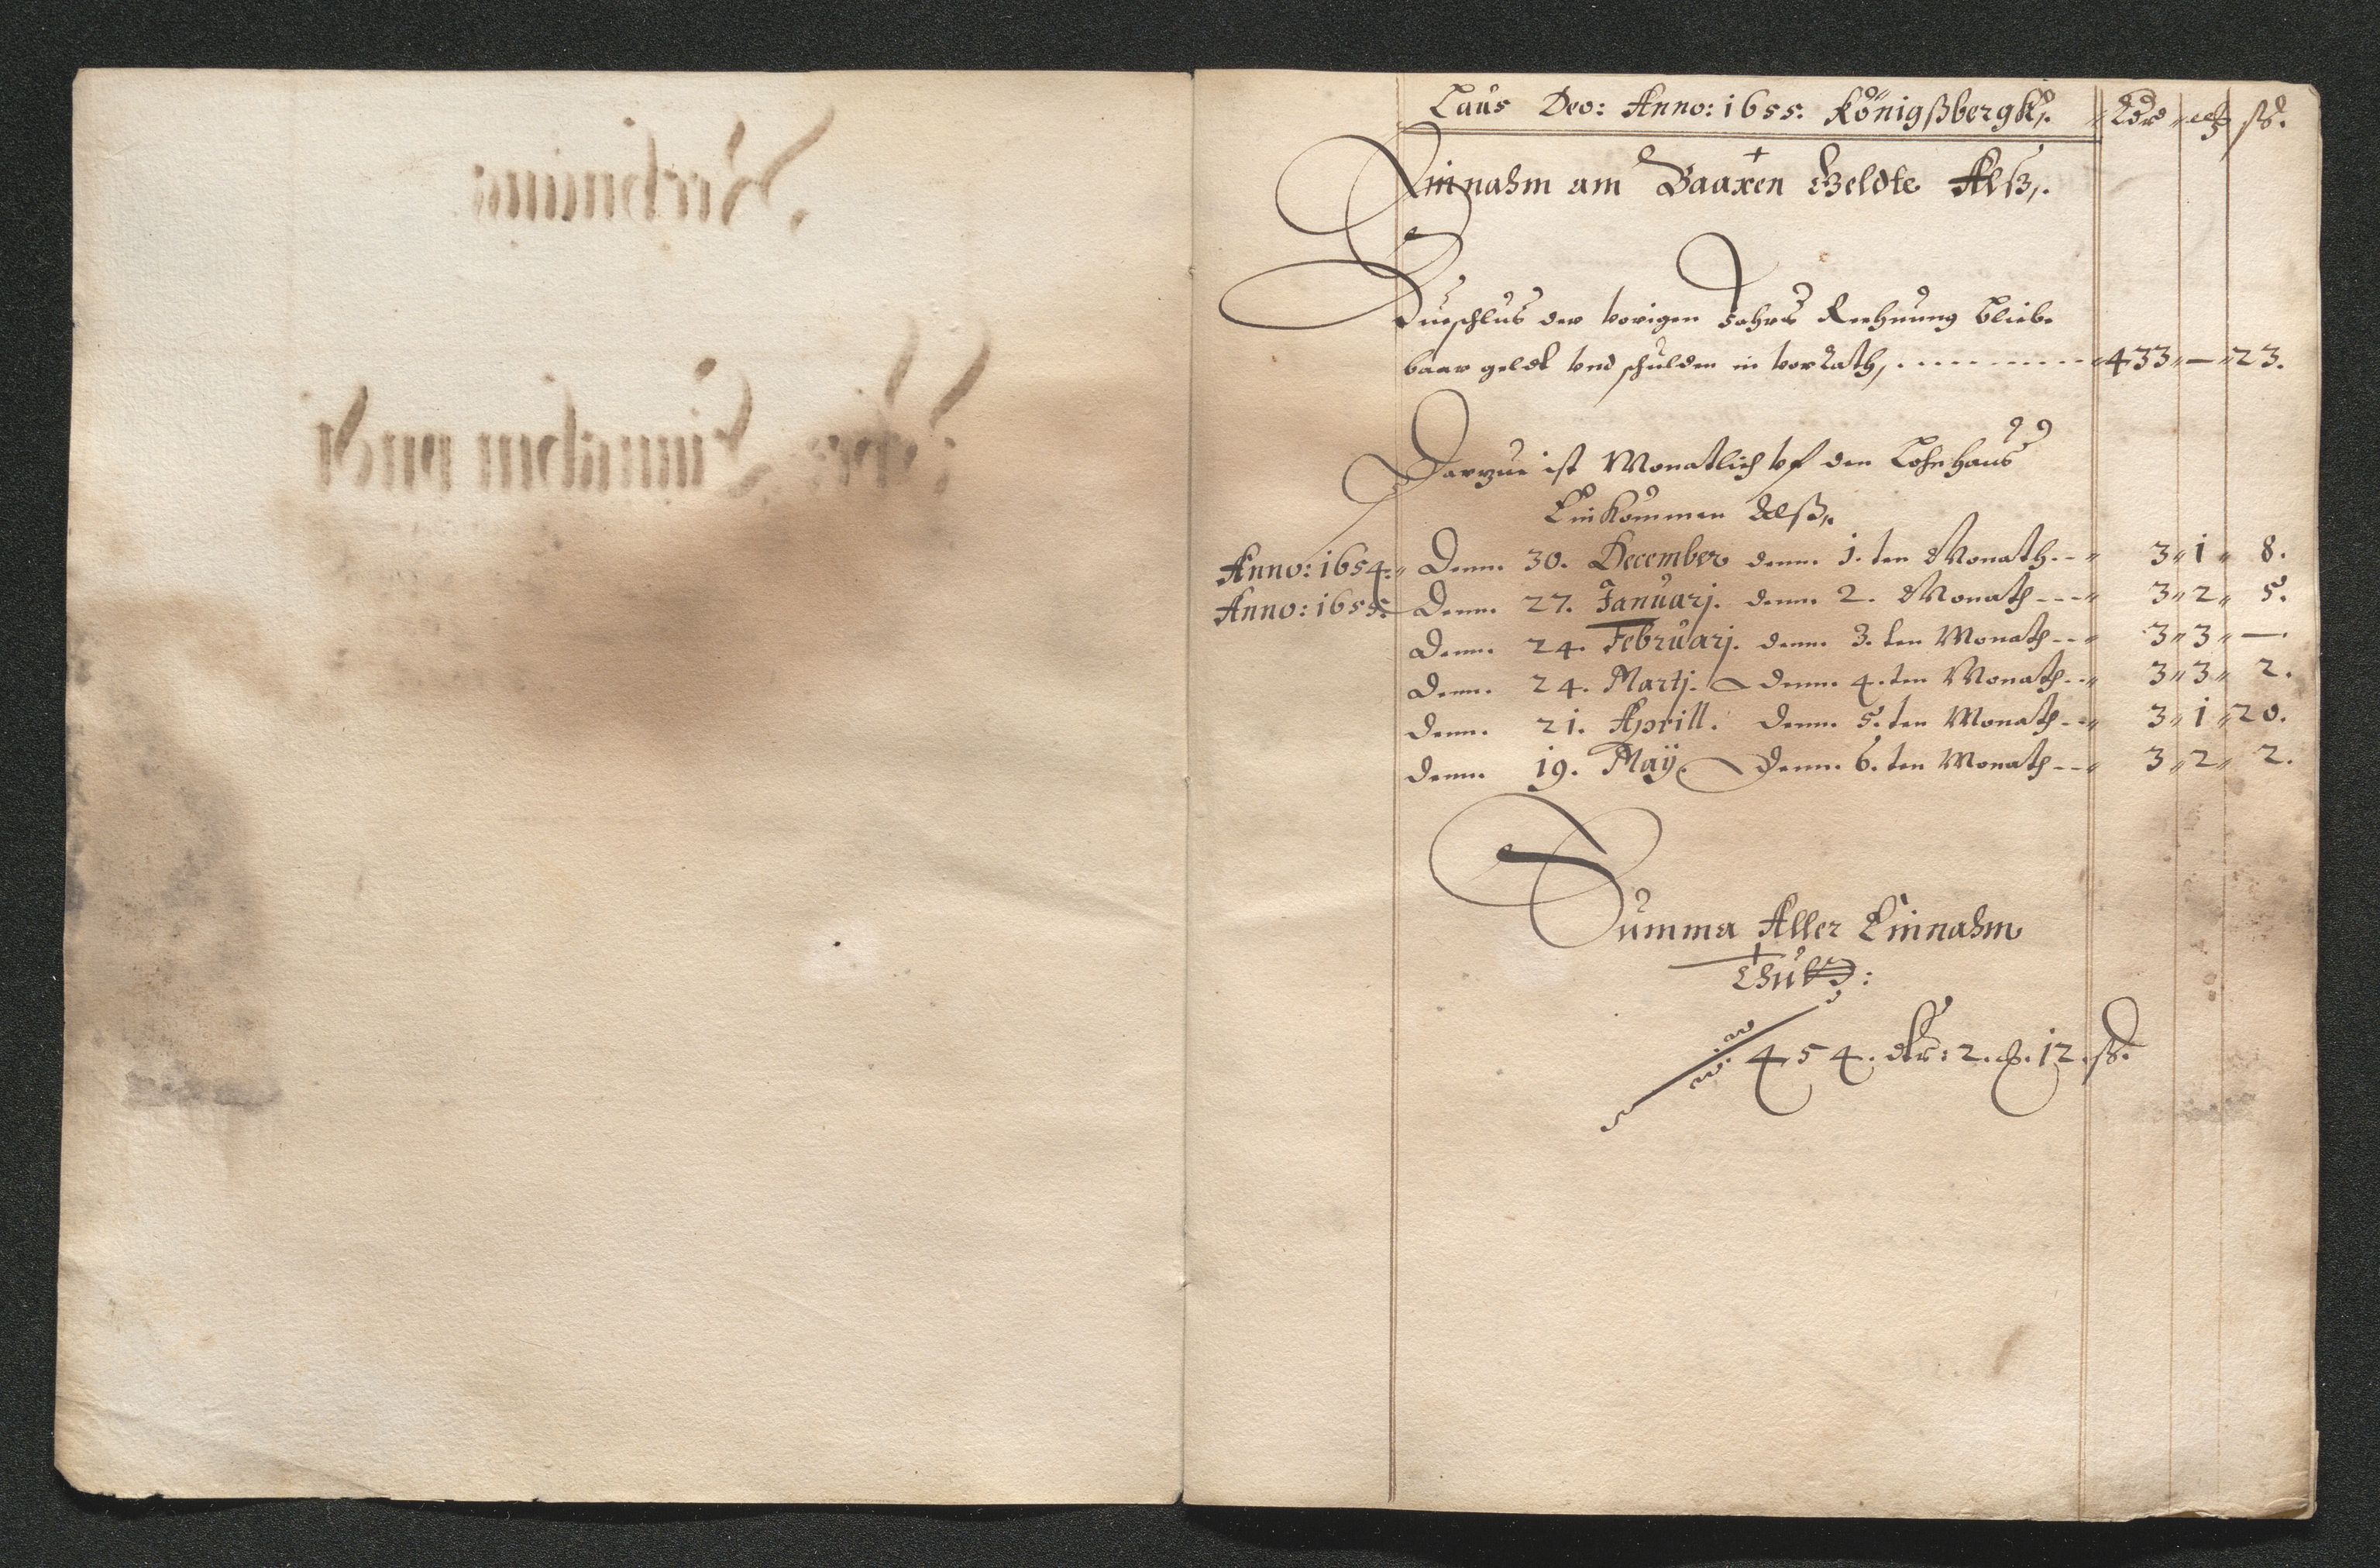 Laus Deo: Anno: 1655. Königßbergk.
Einnahm am Baaren Geldte Alß.
der vorigen Jahres Rechnung bliebe
baar geldt vnd schulden in vorrath, 433 — 23.
Darzue ist Monatlich vf den Lohnhaus
Einkommen Alß,
Anno: 1654: Denn. 30. December denn. 1. ten Monath 3 1 8.
Anno: 1655: Denn. 27. Januarj. denn. 2. Monath 3 2 5.
Denn. 24. Februarj. denn. 3. ten Monath 3 3 —.
Denn. 24. Martj. denn. 4. ten Monath 3 3 2.
Denn. 21. Aprill. denn. 5. ten Monath 3 1 20.
Denn. 19. Maÿ. Denn. 6. ten Monath 3 2 2.
Summa Aller Einnahm
Thutt:
454. tlr: 2. g. 12. ß.